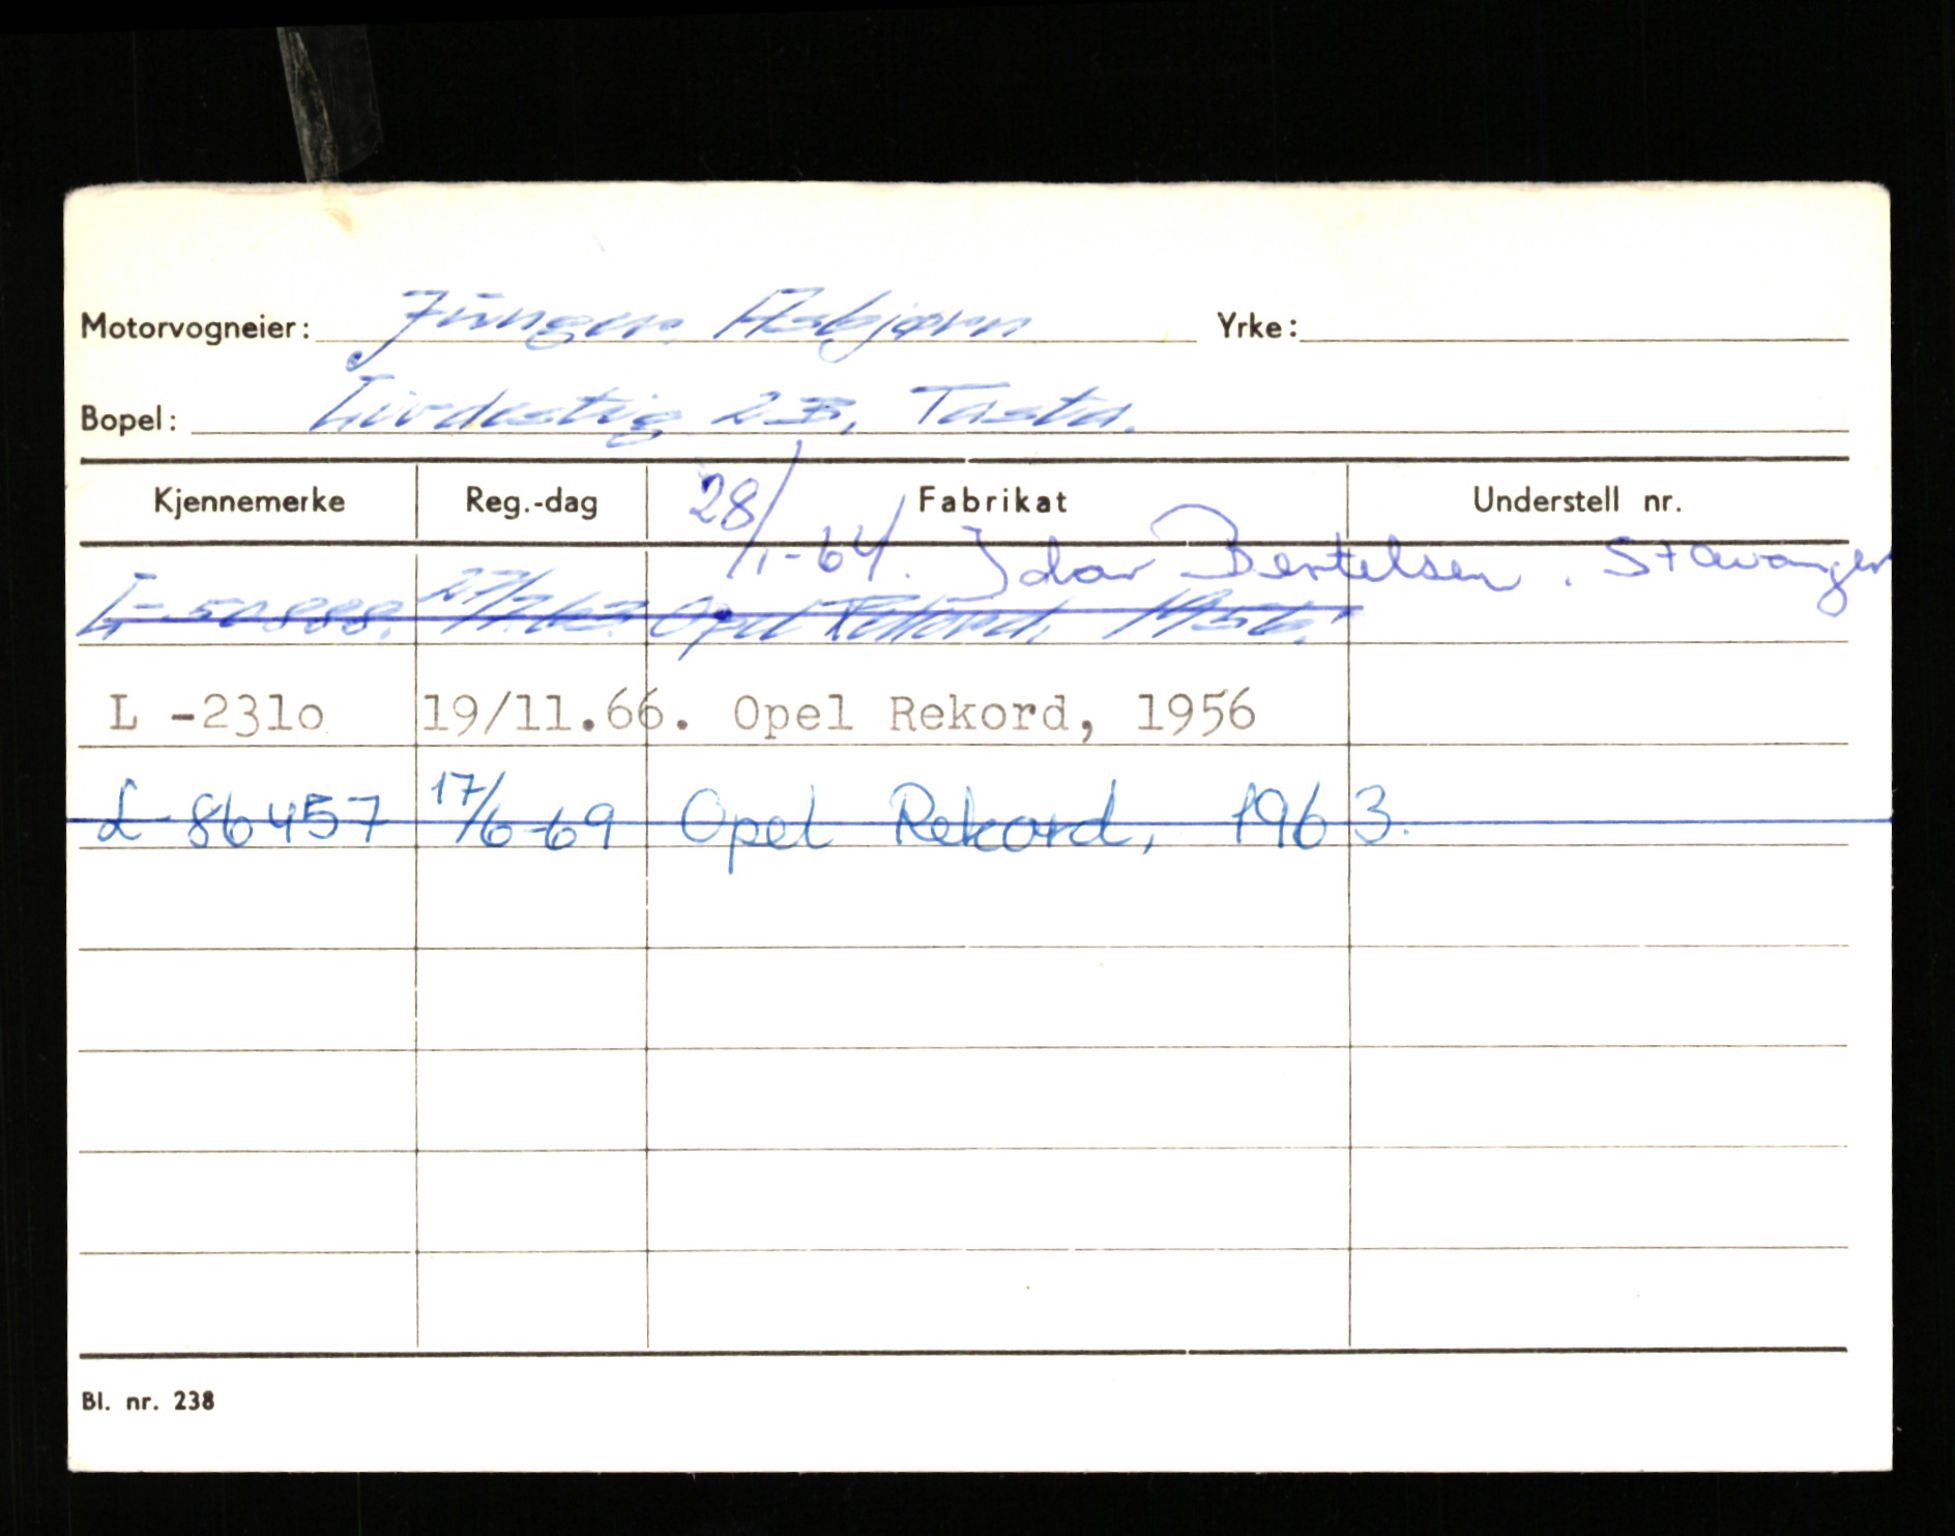 Motorvogneier: Jünger. Asbjørn Yrke:
Bopel: 2B, Tasta.
Kjennemerke Reg.-dag Fabrikat Understell nr.
28/1-64. Idar Bertelsen. Stavanger
L-50888. Opel Rekord, 1956.
L -231o 19/11.66. Opel Rekord, 1956
L-86457 17/6-69 Opel Rekord, 1963.
Bl. nr. 238